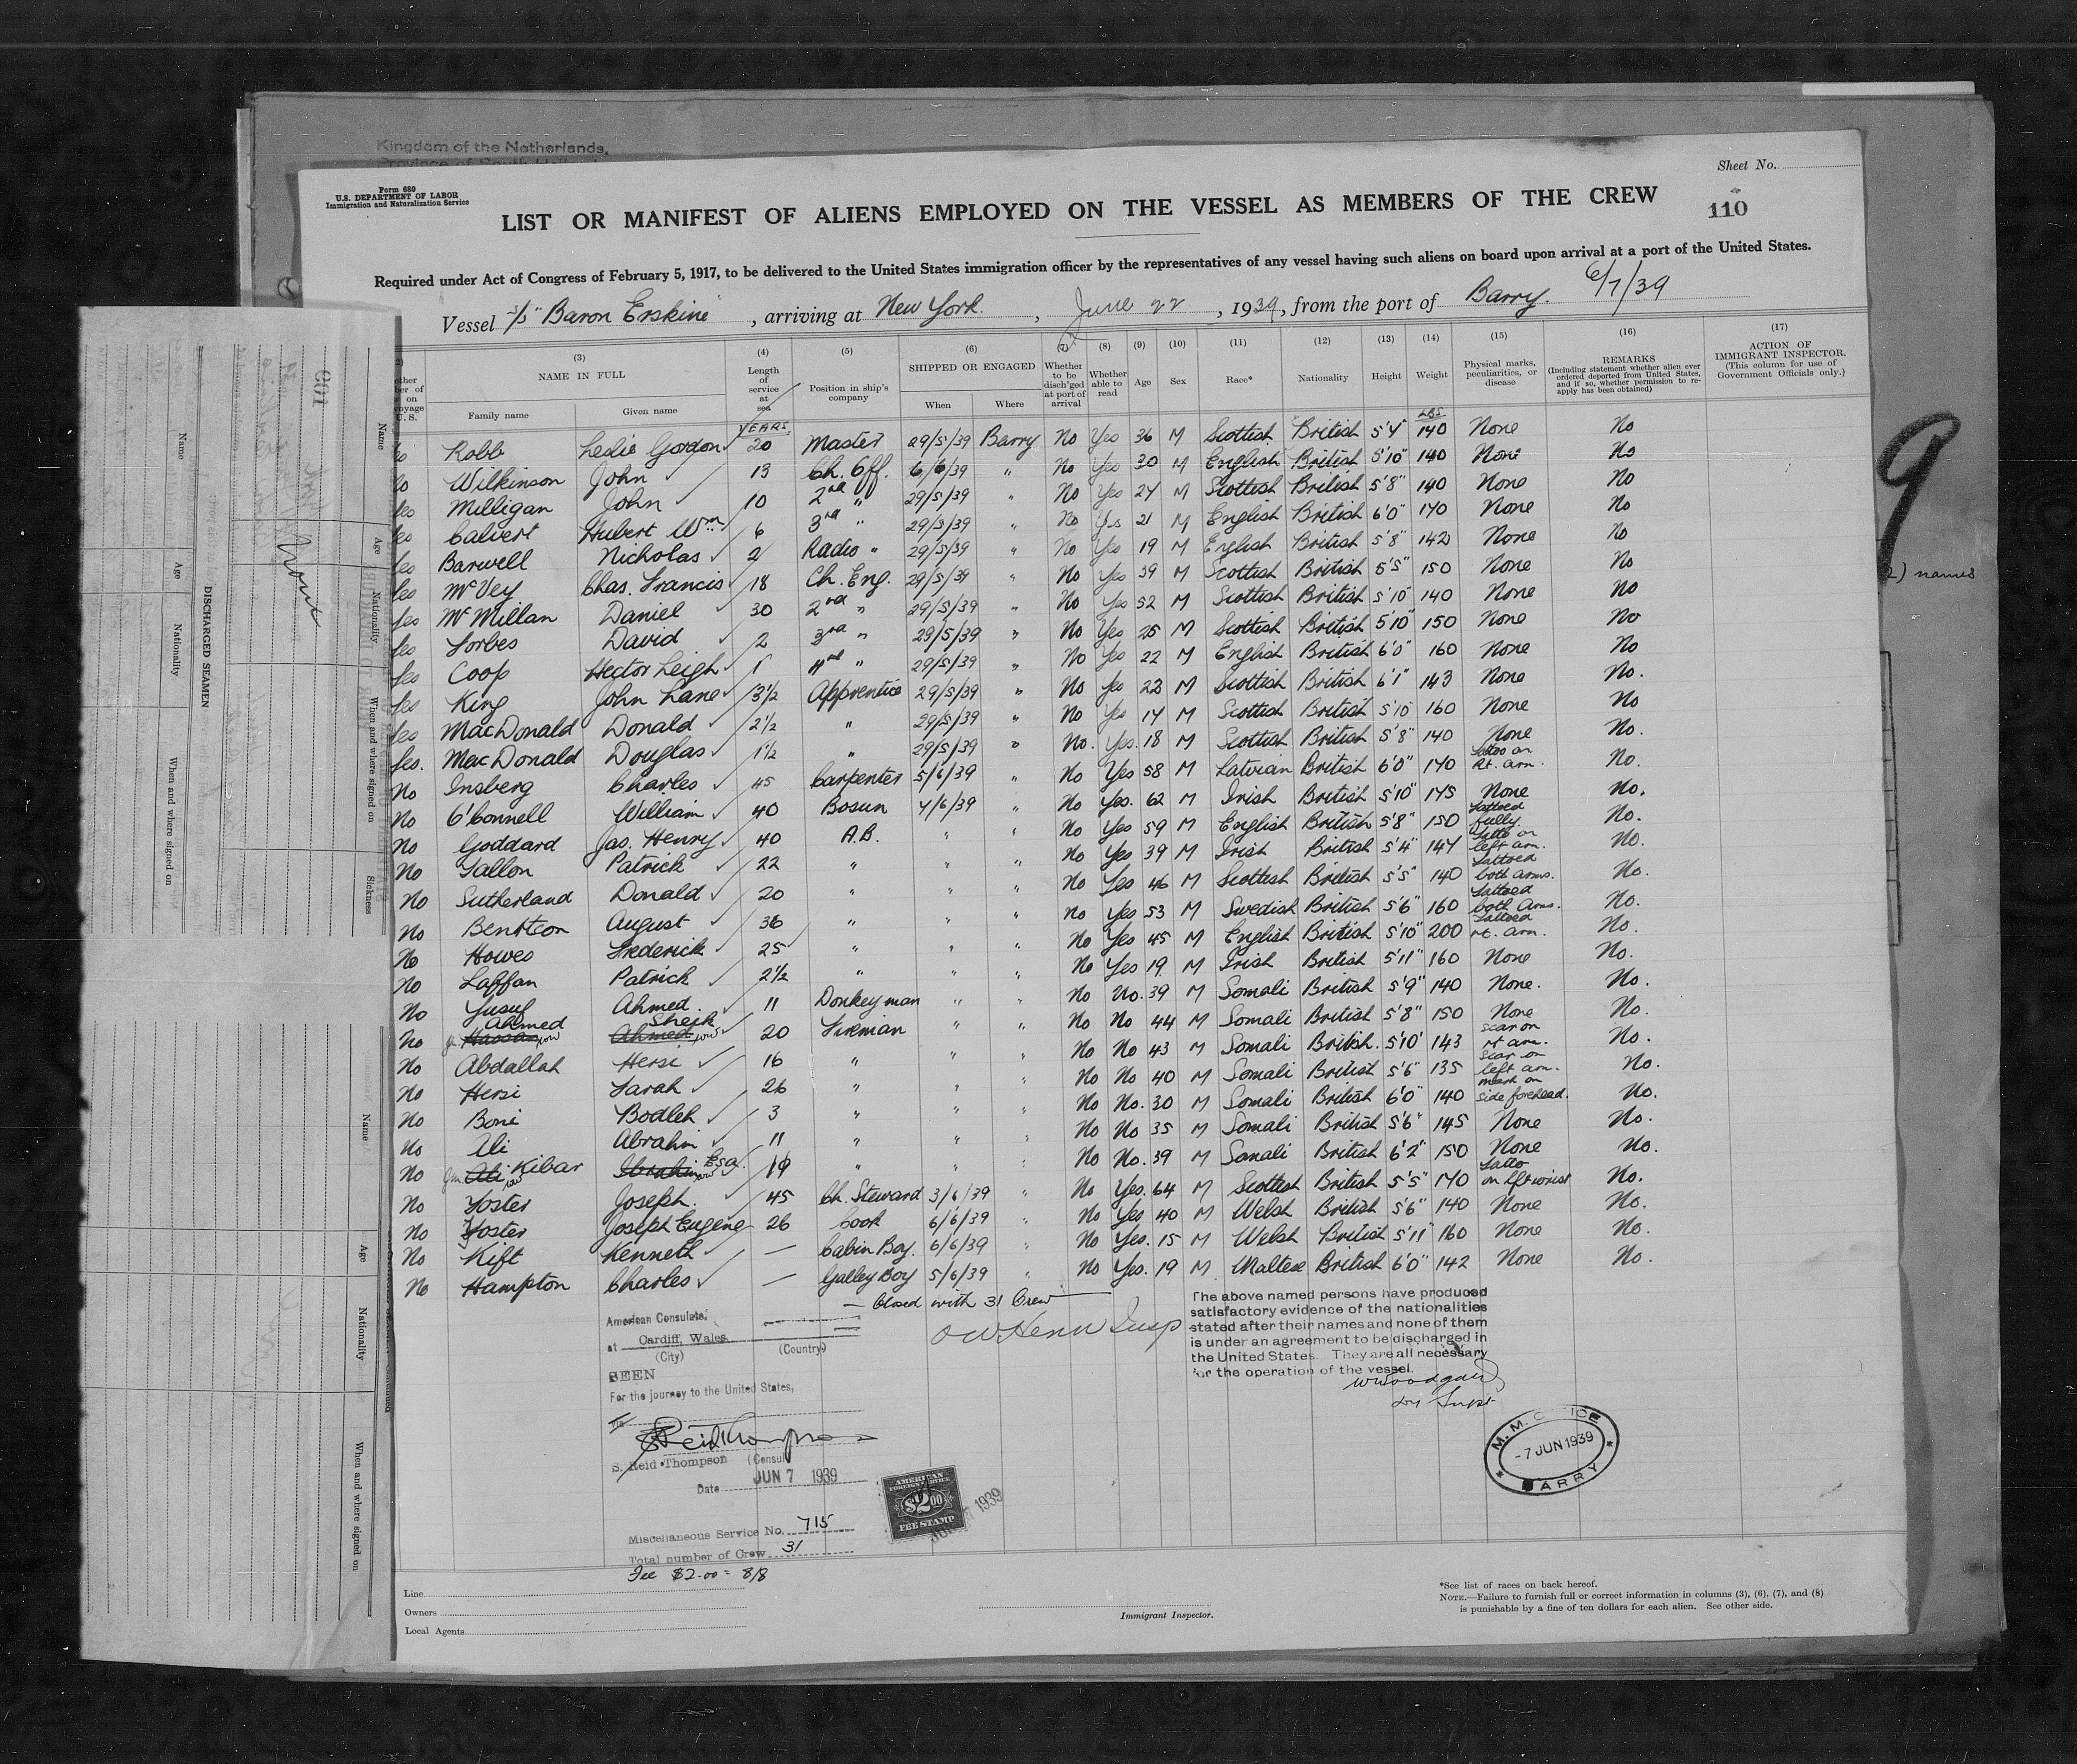 Kingdom of the Netherlands,
Form 680
U.S. DEPARTMENT OF LABOR
Immigration and Naturalization Service
Sheet No.
LIST OR MANIFEST OF ALIENS EMPLOYED ON THE VESSEL AS MEMBERS OF THE CREW
110
Required under Act of Congress of February 5, 1917, to be delivered to the United States immigration officer by the representatives of any vessel having such aliens on board upon arrival at a port of the United States.
Vessel S/S "Baron Erskine", arriving at New York., June 22, 1939, from the port of Barry. 6/7/39
(3) (4) (5) (6) (7) (8) (9) (10) (11) (12) (13) (14) (15) (16) (17)
NAME IN FULL Length of service at sea Position in ship's company SHIPPED OR ENGAGED Whether to be disch'ged at port of arrival Whether able to read Age Sex Race* Nationality Height Weight Physical marks, peculiarities, or disease REMARKS (Including statement whether alien ever ordered deported from United States, and if so, whether permission to re-apply has been obtained) ACTION OF IMMIGRANT INSPECTOR. (This column for use of Government Officials only.)
Family name Given name When Where
YEARS. LBS
Robb Leslie Gordon 20 Master 29/5/39 Barry No Yes 36 M Scottish British 5'4" 140 None No
Wilkinson John 13 Ch. Off. 6/6/39 " No Yes 30 M English British 5'10" 140 None No
Yes Milligan John 10 2nd " 29/5/39 " No Yes 24 M Scottish British 5'8" 140 None No
Yes Calvert Hubert Wm 6 3rd " 29/5/39 " No Yes 21 M English British 6'0" 170 None No
Yes Barwell Nicholas 2 Radio " 29/5/39 " No Yes 19 M English British 5'8" 142 None No
Yes McVey Chas. Francis 18 Ch. Eng. 29/5/39 " No Yes 39 M Scottish British 5'5" 150 None No
Yes McMillan Daniel 30 2nd " 29/5/39 " No Yes 52 M Scottish British 5'10" 140 None No
Yes Forbes David 2 3rd " 29/5/39 " No Yes 25 M Scottish British 5'10" 150 None No
Yes Coop Hector Leigh 1 4th " 29/5/39 " No Yes 22 M English British 6'0" 160 None No
Yes King John Lane 3½ Apprentice 29/5/39 " No Yes 22 M Scottish British 6'1" 143 None No.
Yes MacDonald Donald 2½ " 29/5/39 " No Yes 17 M Scottish British 5'10" 160 None No
Yes. MacDonald Douglas 1½ " 29/5/39 " No. Yes. 18 M Scottish British 5'8" 140 None No.
No Insberg Charles 45 Carpenter 5/6/39 " No Yes 58 M Latvian British 6'0" 170 Tattoo on Rt. arm. No.
No O'Connell William 40 Bosun 4/6/39 " No Yes. 62 M Irish British 5'10" 175 None No.
No Goddard Jas. Henry 40 A.B. " " No Yes 59 M English British 5'8" 150 Tattoed fully. No.
No Fallon Patrick 22 " " " No Yes 39 M Irish British 5'4" 147 Tatto on left arm. No.
No Sutherland Donald 20 " " " No Yes 46 M Scottish British 5'5" 140 Tattoed both arms. No.
No August 36 " " " No Yes 53 M Swedish British 5'6" 160 Tattoed both Arms. No.
No Howes Frederick 25 " " " No Yes 45 M English British 5'10" 200 Tattoed rt. arm. No.
No Laffan Patrick 2½ " " " No Yes 19 M Irish British 5'11" 160 None No.
No Yusuf Ahmed 11 Donkeyman " " No No. 39 M Somali British 5'9" 140 None. No.
No Hassan Ahmed Ahmed Sheik 20 Fireman " " No No 44 M Somali British 5'8" 150 None No.
No Abdallah Hersi 16 " " " No No 43 M Somali British. 5'10" 143 scar on rt arm. No.
No Hersi Farah 26 " " " No No 40 M Somali British 5'6" 135 scar on left arm. No.
No Boni Bodleh 3 " " " No No. 30 M Somali British 6'0" 140 mark on side forehead. No.
No Ali Abrahim 11 " " " No No 35 M Somali British 5'6" 145 None No.
No Ali Kibar Ibrahim Esa. 19 " " " No No. 39 M Somali British 6'2" 150 None No.
No Foster Joseph. 45 Ch. Steward 3/6/39 " No Yes. 64 M Scottish British 5'5" 170 Tatto on lft wrist No.
No Foster Joseph Eugene 26 Cook 6/6/39 " No Yes 40 M Welsh British 5'6" 140 None No.
No Kift Kenneth — Cabin Boy. 6/6/39 " No Yes. 15 M Welsh British 5'11" 160 None No.
No Hampton Charles — Galley Boy 5/6/39 " No Yes. 19 M Maltese British 6'0" 142 None No.
— Closed with 31 Crew —
American Consulate,
at Cardiff, Wales
(City) (Country)
SEEN
For the journey to the United States,
S. Reid Thompson (Consul
Date JUN 7 1939
AMERICAN
FOREIGN SERVICE
$2.00
FEE STAMP
1939
Miscellaneous Service No. 715
Total number of Crew 31
Fee $2.00 = 8/8
The above named persons have produced
satisfactory evidence of the nationalities
stated after their names and none of them
is under an agreement to be discharged in
the United States. They are all necessary
for the operation of the vessel.
M.M. OFFICE
-7 JUN 1939
BARRY
Line
Owners
Local Agents
Immigrant Inspector.
*See list of races on back hereof.
NOTE.—Failure to furnish full or correct information in columns (3), (6), (7), and (8)
is punishable by a fine of ten dollars for each alien. See other side.
DISCHARGED SEAMEN
Name Age Nationality When and where signed on
Name Age Nationality When and where signed on Sickness
None
Name Age Nationality When and where signed on
9
names